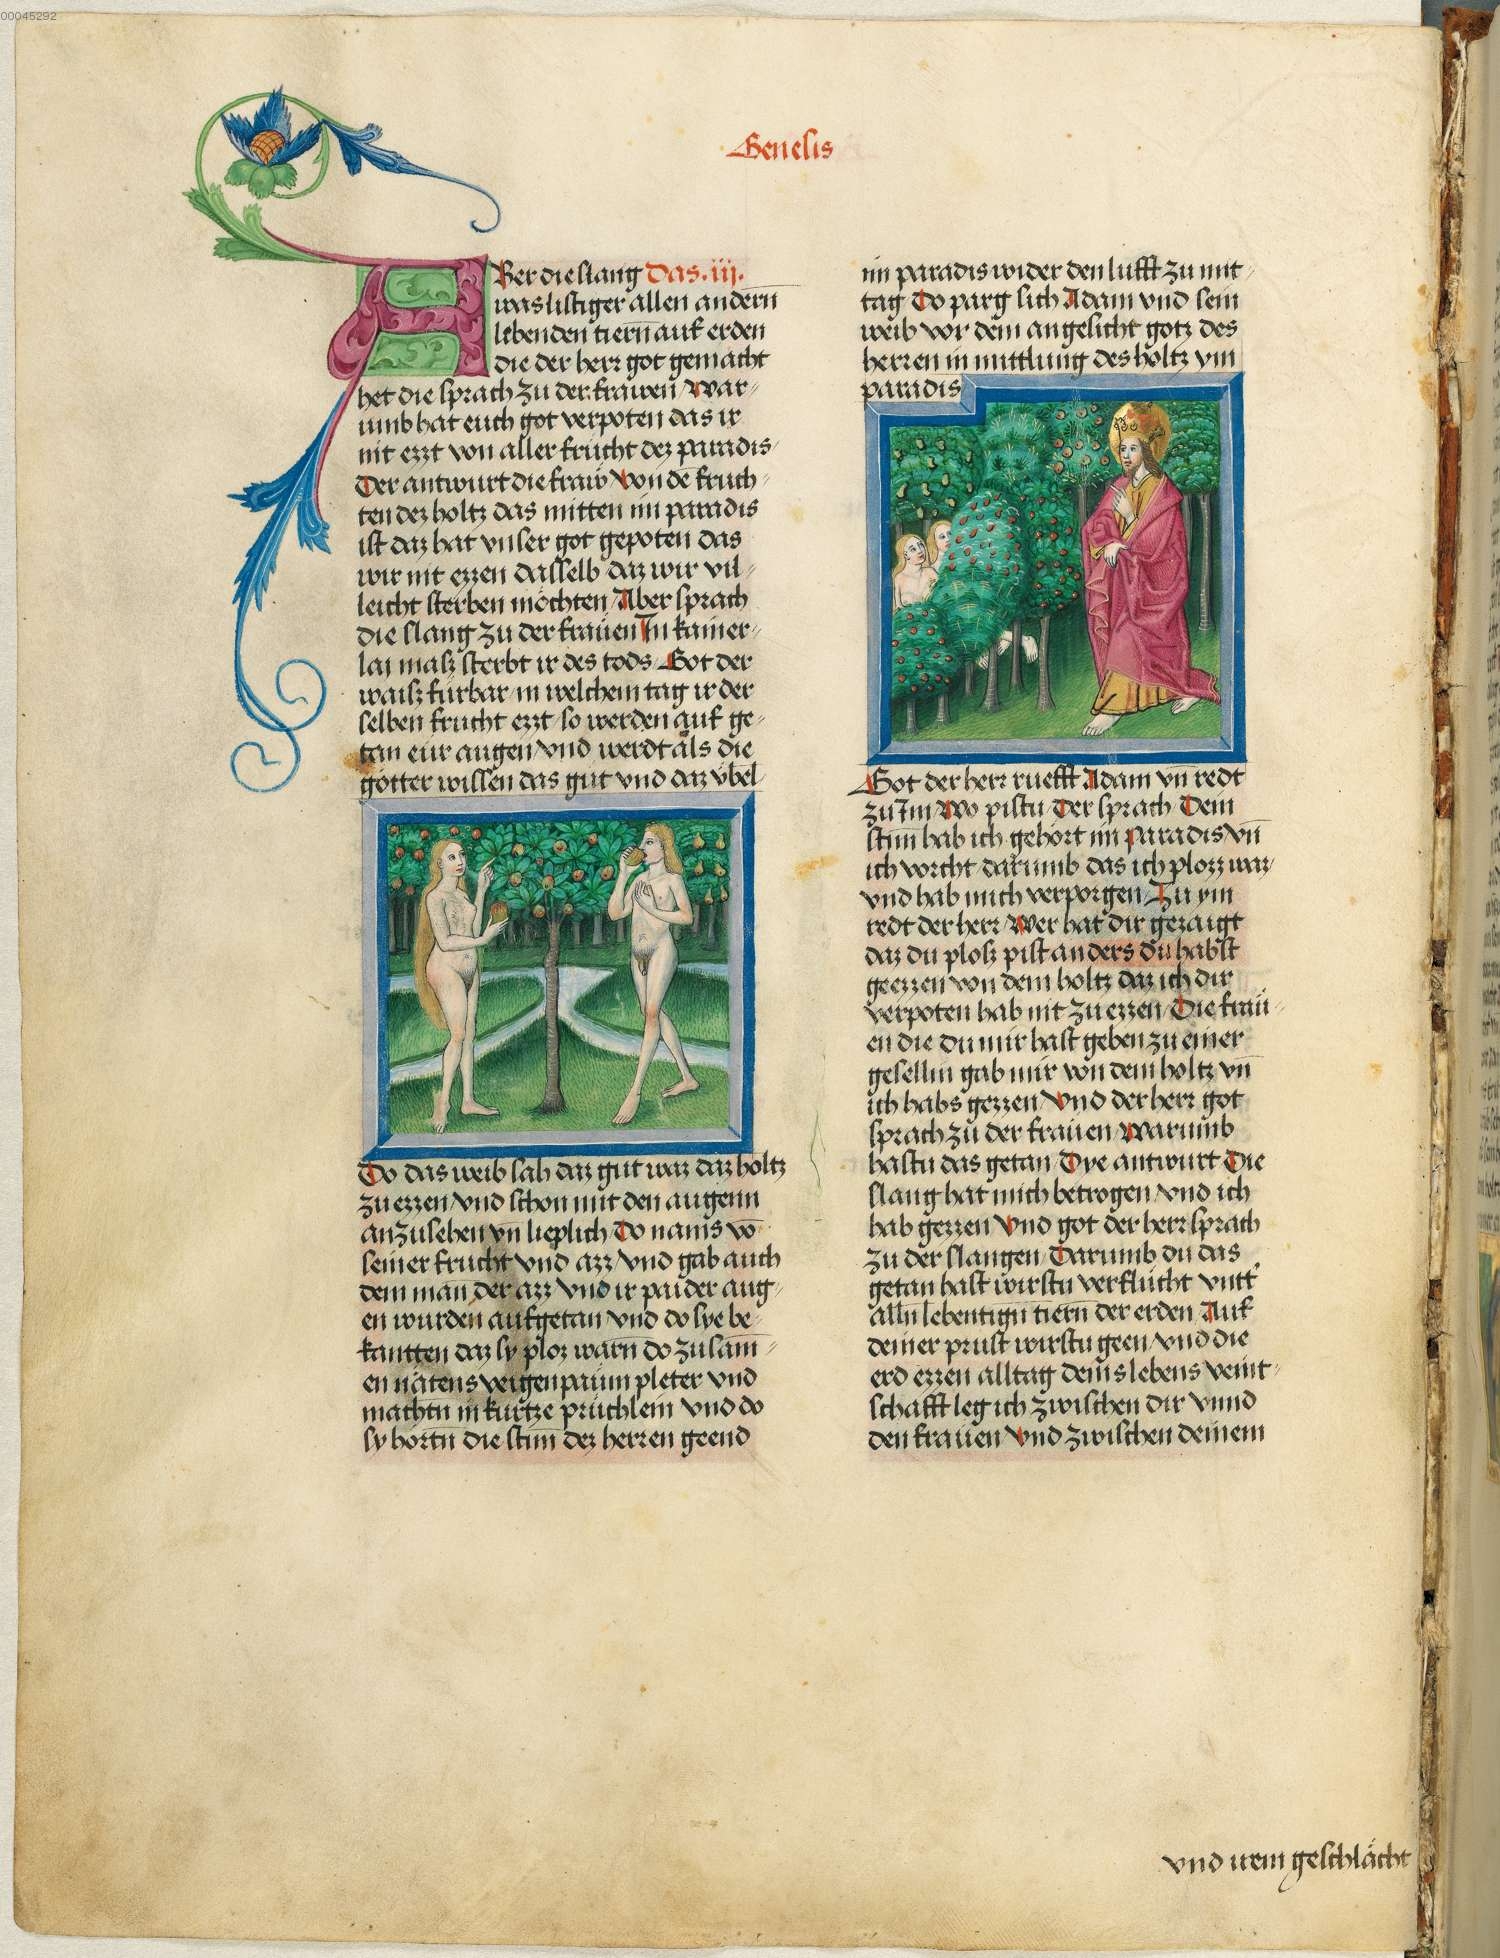 00045292
Genesis
Aber die slang Das .iij.
was listiger allen andern
lebenden tiern auf erden
die der herr got gemacht
het die sprach zu der frawen / War⸗
umb hat euch got verpoten das ir
nit ezzt von aller frucht dez paradis
Der antwurt die fraw Von dē fruch⸗
ten dez holtz das mitten im paradis
ist daz hat vnser got gepoten das
wir nit ezzen dasselb daz wir vil⸗
leicht sterben möchten Aber sprach
die slang zu der frauen In kainer⸗
lai masz sterbt ir des tods Got der
waisz fürbar in welchem tag ir der
selben frucht ezzt / so werden auf ge⸗
tan eur augen / vnd werdt als die
götter wissen das gut vnd daz vbel
Do das weib sah daz gut waz daz holtz
zu ezzen / vnd schon mit den augenn
anzusehen vn̄ lieplich Do nams vō
seiner frucht vnd azz / vnd gab auch
dem man der azz vnd ir paider aug⸗
en wurden aufgetan vnd do sye be⸗
kantten daz sy ploz warn do zusam⸗
en nätens veigenpaum pleter vnd
machtn in kurtze prüchlein vnd do
sy hortn die stim̄ dez herren geend
im paradis wider den lufft zu mit⸗
tag Do parg sich Adam vnd sein
weib vor dem angesicht gotz des
herren in mittlung des holtz ym
paradis
Got der herr ruefft Adam vn̄ redt
zu Im Wo pistu Der sprach Dein
stim̄ hab ich gehört im paradis vn̄
ich vorcht darumb das ich plozz war
vnd hab mich verporgen / Zu ym
redt der herr Wer hat dir gezaigt
daz du plosz pist anders du habst
geezzen von dem holtz daz ich dir
verpoten hab nit zu ezzen / Die frau⸗
en die du mir hast geben zu einer
gesellin gab mir von dem holtz vn̄
ich habs gezzen Vnd der herr got
sprach zu der frauen Warumb
hastu das getan Dye antwurt Die
slang hat mich betrogen / vnd ich
hab gezzen Vnd got der herr sprach
zu der slangen Darumb du das
getan hast wirstu verflucht vntt̓
alln̄ lebentign̄ tiern der erden Auf
deiner prust wirstu geen / vnd die
erd ezzen alltag deins lebens veint⸗
schafft leg ich zwischen dir vnnd
den frauen Vnd zwischen deinem
vnd irem geschlächt